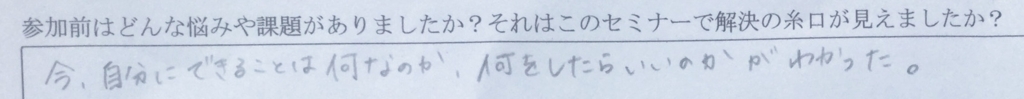 参加前はどんな悩みや課題がありましたか？それはこのセミナーで解決の糸口が見えましたか？
今、自分にできることは何なのか、何をしたらいいのかがわかった。